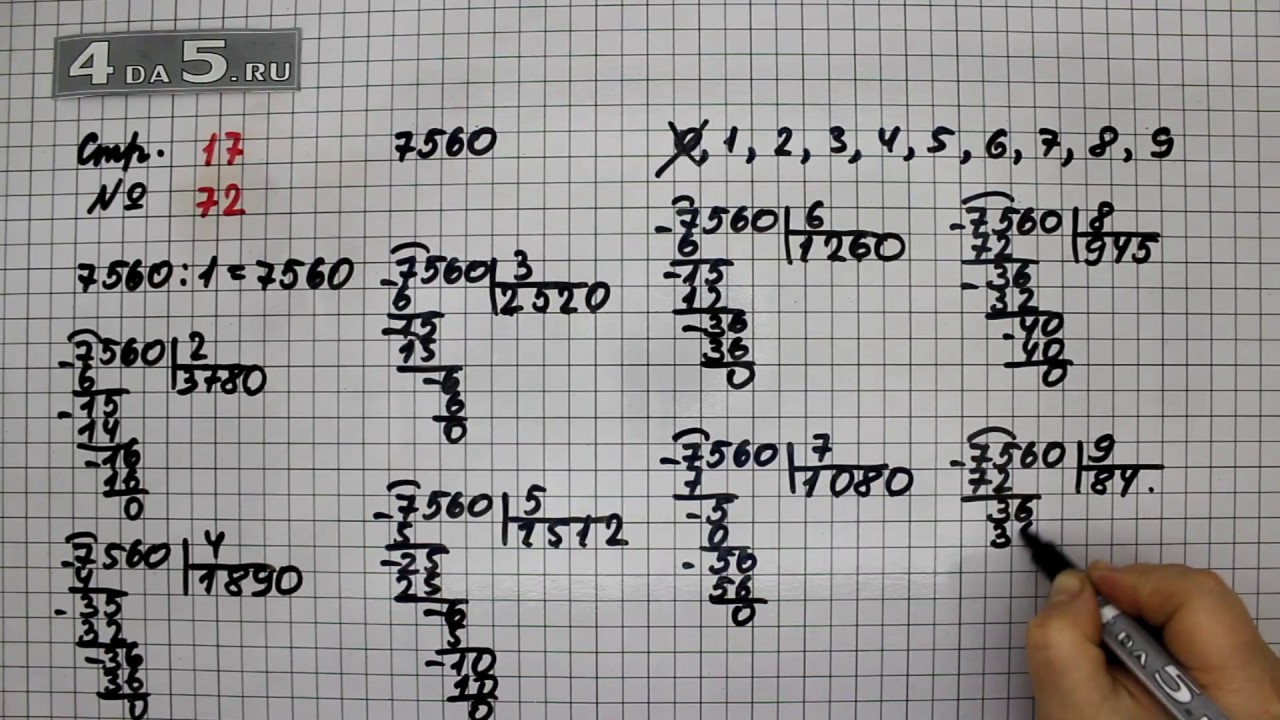 4 DA 5.RU
Стр. 17
№ 72
7560
0, 1, 2, 3, 4, 5, 6, 7, 8, 9
7560 : 1 = 7560
-7560 | 2
6 3780
-15
14
-16
16
0
-7560 | 4
4 1890
-35
32
-36
36
0
-7560 | 3
6 2520
-15
15
-6
6
0
-7560 | 5
5 1512
-25
25
-6
5
-10
10
0
-7560 | 6
6 1260
-15
12
-36
36
0
-7560 | 7
7 1080
-5
0
-56
56
0
-7560 | 8
72 945
-36
32
-40
40
0
-7560 | 9
72 84.
36
3
DA 5.